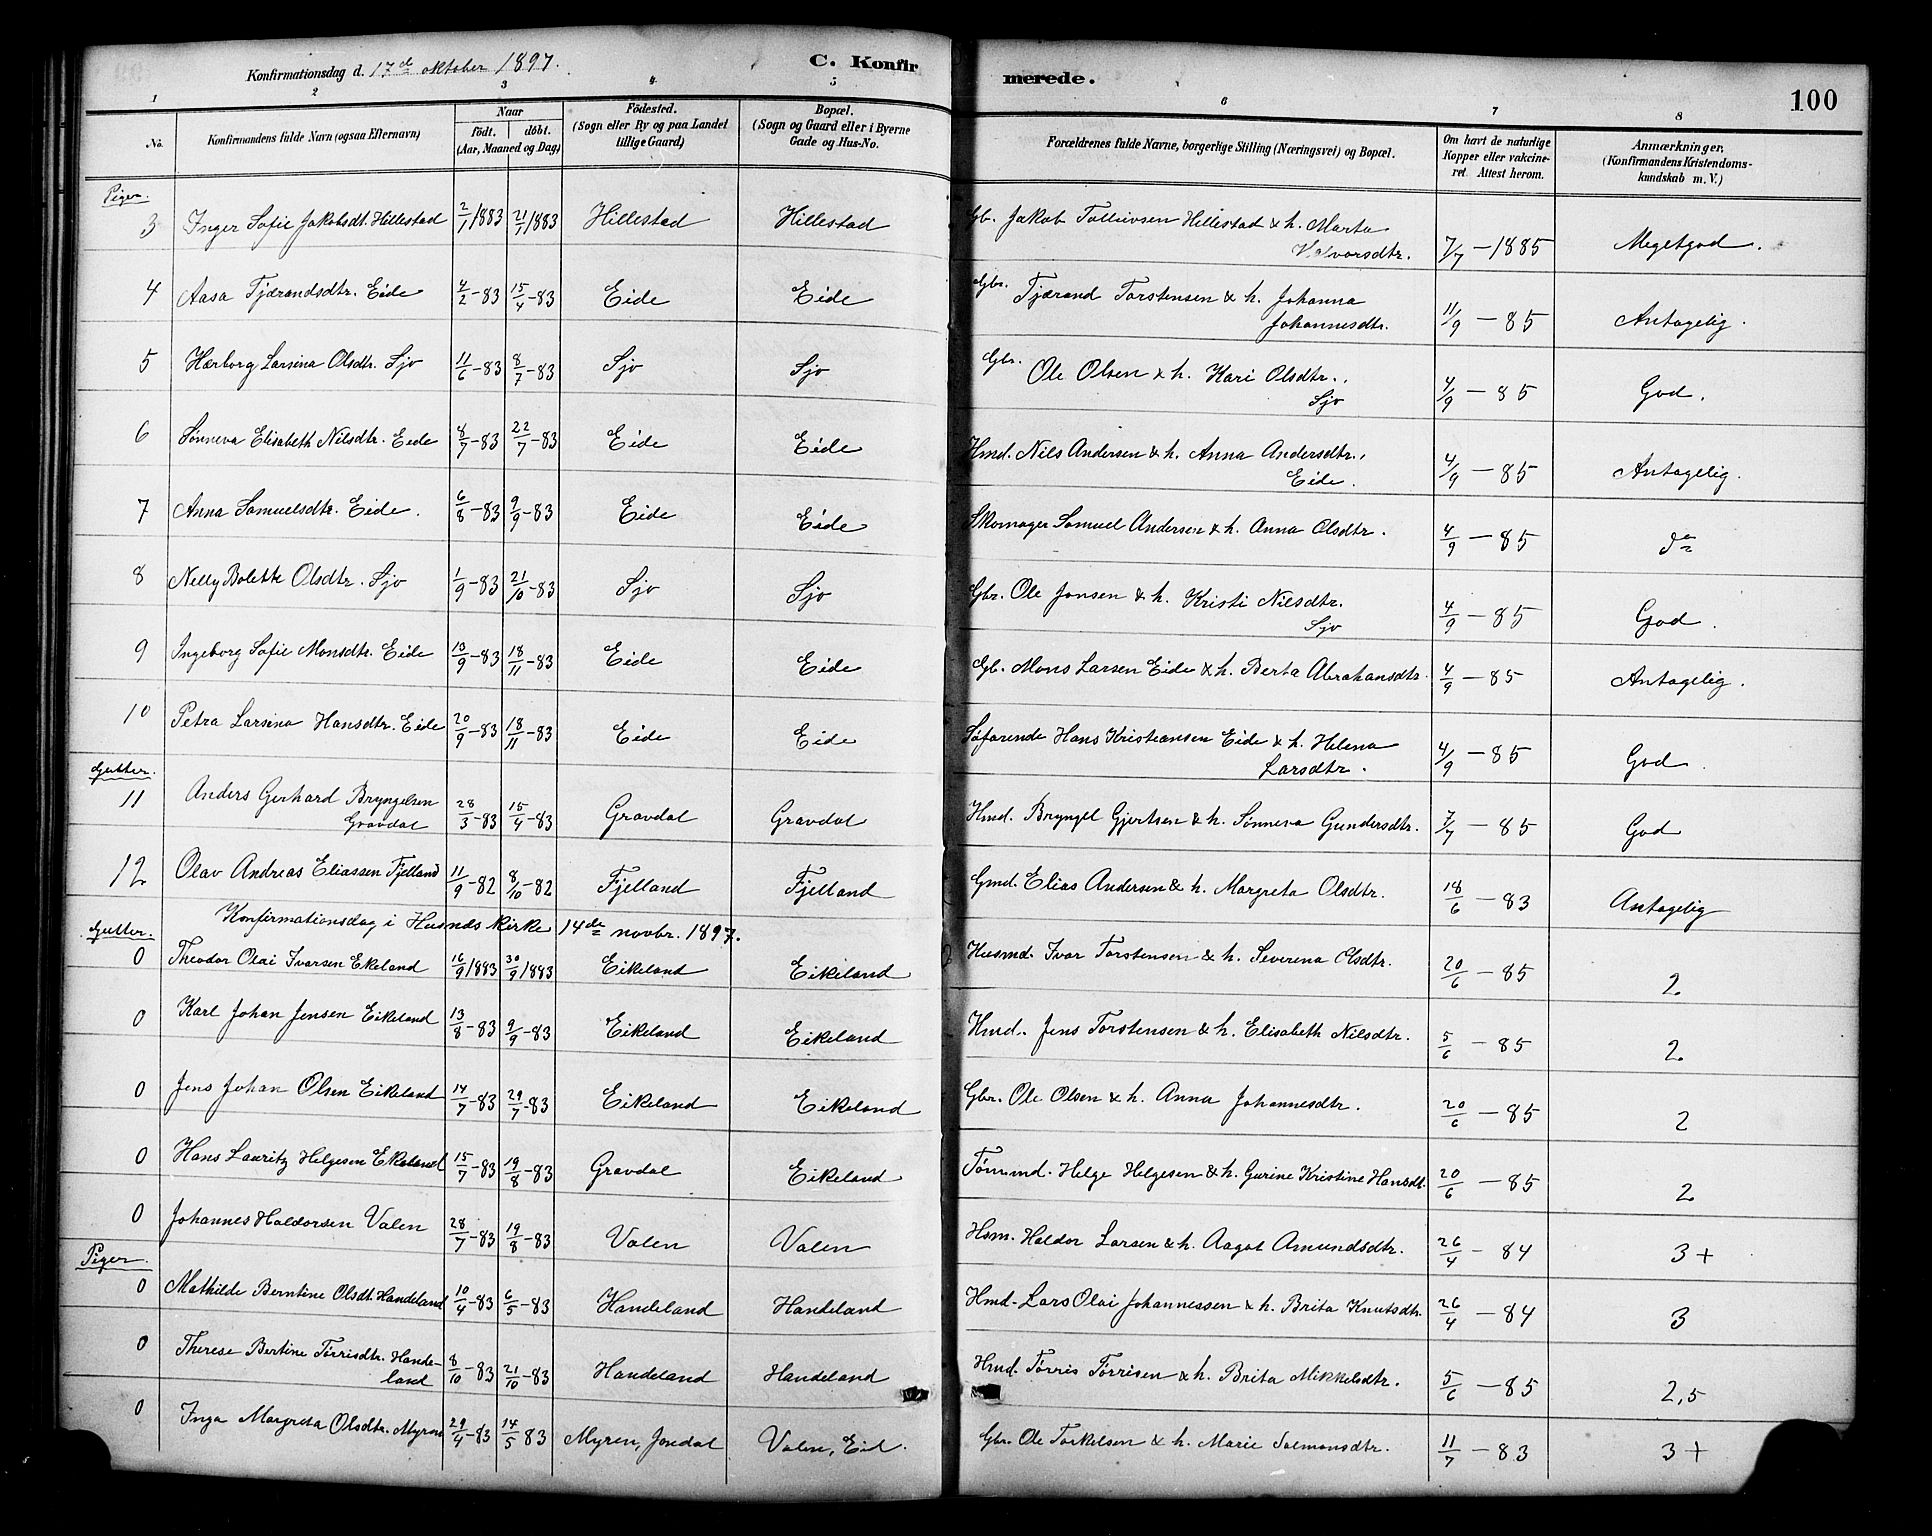 Konfirmationsdag d. 17de oktober 1897.
C. Konfir
merede.
100
1 2 3 4 5 6 7 8
No. Konfirmandens fulde Navn (ogsaa Efternavn)
Naar
födt. döbt.
(Aar, Maaned og Dag)
Födested.
(Sogn eller By og paa Landet
tillige Gaard)
Bopæl.
(Sogn og Gaard eller i Byerne
Gade og Hus-No.
Forældrenes fulde Navne, borgerlige Stilling (Næringsvei) og Bopæl.
Om havt de naturlige
Kopper eller vakcine-
ret. Attest herom.
Anmærkninger,
(Konfirmandens Kristendoms-
kundskab m. V.)
Piger.
3 Inger Sofie Jakobsdt. Hillestad 2/1 1883 21/1 1883 Hillestad Hillestad Gb. Jakob Tollivsen Hillestad & h. Marta
Halvorsdtr. 7/7 - 1885 Megetgod.
4 Aasa Tjærandsdtr. Eide 4/2 - 83 15/4 - 83 Eide Eide Gbr. Tjærand Torstensen & h. Johanna
Johannesdtr. 11/9 - 85 Antagelig.
5 Hærborg Larsina Olsdtr. Sjo 11/6 - 83 8/7 - 83 Sjo Sjo Gbr. Ole Olsen & h. Kari Olsdtr.,
Sjo 4/9 - 85 God.
6 Sønneva Elisabeth Nilsdtr. Eide 8/7 - 83 22/7 - 83 Eide Eide Hmd. Nils Andersen & h. Anna Andersdtr.,
Eide. 4/9 - 85 Antagelig.
7 Anna Samuelsdtr. Eide. 6/8 - 83 9/9 - 83 Eide Eide Skomager Samuel Andersen & h. Anna Olsdtr. 4/9 - 85 do
8 Nelly Bolette Olsdtr. Sjo 1/9 - 83 21/10 - 83 Sjo Sjo Gbr. Ole Jonsen & h. Kristi Nilsdtr.
Sjo 4/9 - 85 God.
9 Ingeborg Sofie Monsdtr. Eide 13/9 - 83 18/11 - 83 Eide Eide Gb. Mons Larsen Eide & h. Berta Abrahansdtr. 4/9 - 85 Antagelig.
10 Petra Larsina Hansdtr. Eide 20/9 - 83 18/11 - 83 Eide Eide Søfarende Hans Kristiansen Eide & h. Helena
Larsdtr. 4/9 - 85 God.
Gutter.
11 Anders Gerhard Bryngelsen
Gravdal 28/3 - 83 15/4 - 83 Gravdal Gravdal Hmd. Bryngel Gjertsen & h. Sønneva Gundersdtr. 7/7 - 85 God
12 Olav Andreas Eliassen Fjelland 11/9 - 82 8/10 - 82 Fjelland Fjelland Gmd. Elias Andersen & h. Margreta Olsdtr. 18/6 - 83 Antagelig
Konfirmationsdag i Husnes kirke 14de novbr. 1897.
Gutter.
0 Theodor Olai Ivarsen Ekeland 16/9 1883 30/9 1883 Eikeland Eikeland Husmd. Ivar Torstensen & h. Severina Olsdtr. 20/6 - 85 2
0 Karl Johan Jensen Eikeland 13/8 - 83 9/9 - 83 Eikeland Eikeland Hmd. Jens Torstensen & h. Elisabeth Nilsdtr. 5/6 - 85 2
0 Jens Johan Olsen Eikeland 14/7 - 83 29/7 - 83 Eikeland Eikeland Gbr. Ole Olsen & h. Anna Johannesdtr. 20/6 - 85 2
0 Hans Lauritz Helgesen Ekeland 15/7 - 83 19/8 - 83 Gravdal Eikeland Tømmd. Helge Helgesen & h. Gurine Kristine Hansdt. 20/6 - 85 2
0 Johannes Haldorsen Valen 28/7 - 83 19/8 - 83 Valen Valen Hsm. Haldor Larsen & h. Aagot Amundsdtr. 26/4 - 84 3+
Piger.
0 Mathilde Berntine Olsdt. Handeland 10/4 - 83 6/5 - 83 Handeland Handeland Hmd. Lars Olai Johannessen & h. Brita Knutsdtr. 26/4 - 84 3
0 Therese Bertine Tørrisdtr. Hande-
land 8/10 - 83 21/10 - 83 Handeland Handeland Hmd. Tørris Tørrisen & h. Brita Mikkelsdtr. 5/6 - 85 2,5
0 Inga Margreta Olsdtr. Myren 29/4 - 83 14/5 83 Myren, Jondal Valen, Eid. Gbr. Ole Torkelsen & h. Marie Salmonsdtr. 11/7 - 83 3+